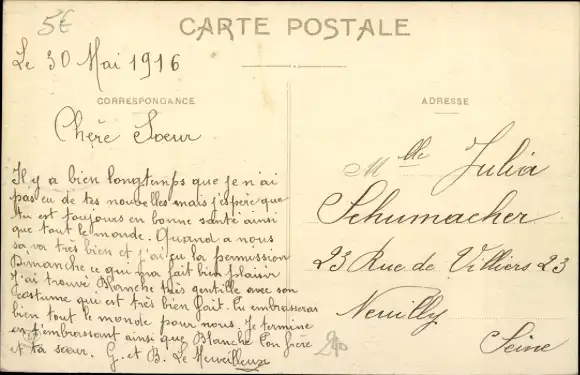 5€
CARTE POSTALE
Le 30 Mai 1916
CORRESPONDANCE
ADRESSE
Chère Soeur
Il y a bien longtemps que je n'ai
pas eu de tes nouvelles mais j'espère que
tu est toujours en bonne santé ainsi
que tout le monde. Quand a nous
sa va très bien et j'ai eu la permission
Dimanche ce qui ma fait bien plaisir
J'ai trouvé Blanche très gentille avec son
costume qui est très bien fait. Tu embrasseras
bien tout le monde pour nous. Je termine
en t'embrassant ainsi que Blanche Ton frère
et ta sœur. G. et B. Le Merveilleux
Mlle Julia
Schumacher
23 Rue de Villiers 23
Neuilly
Seine